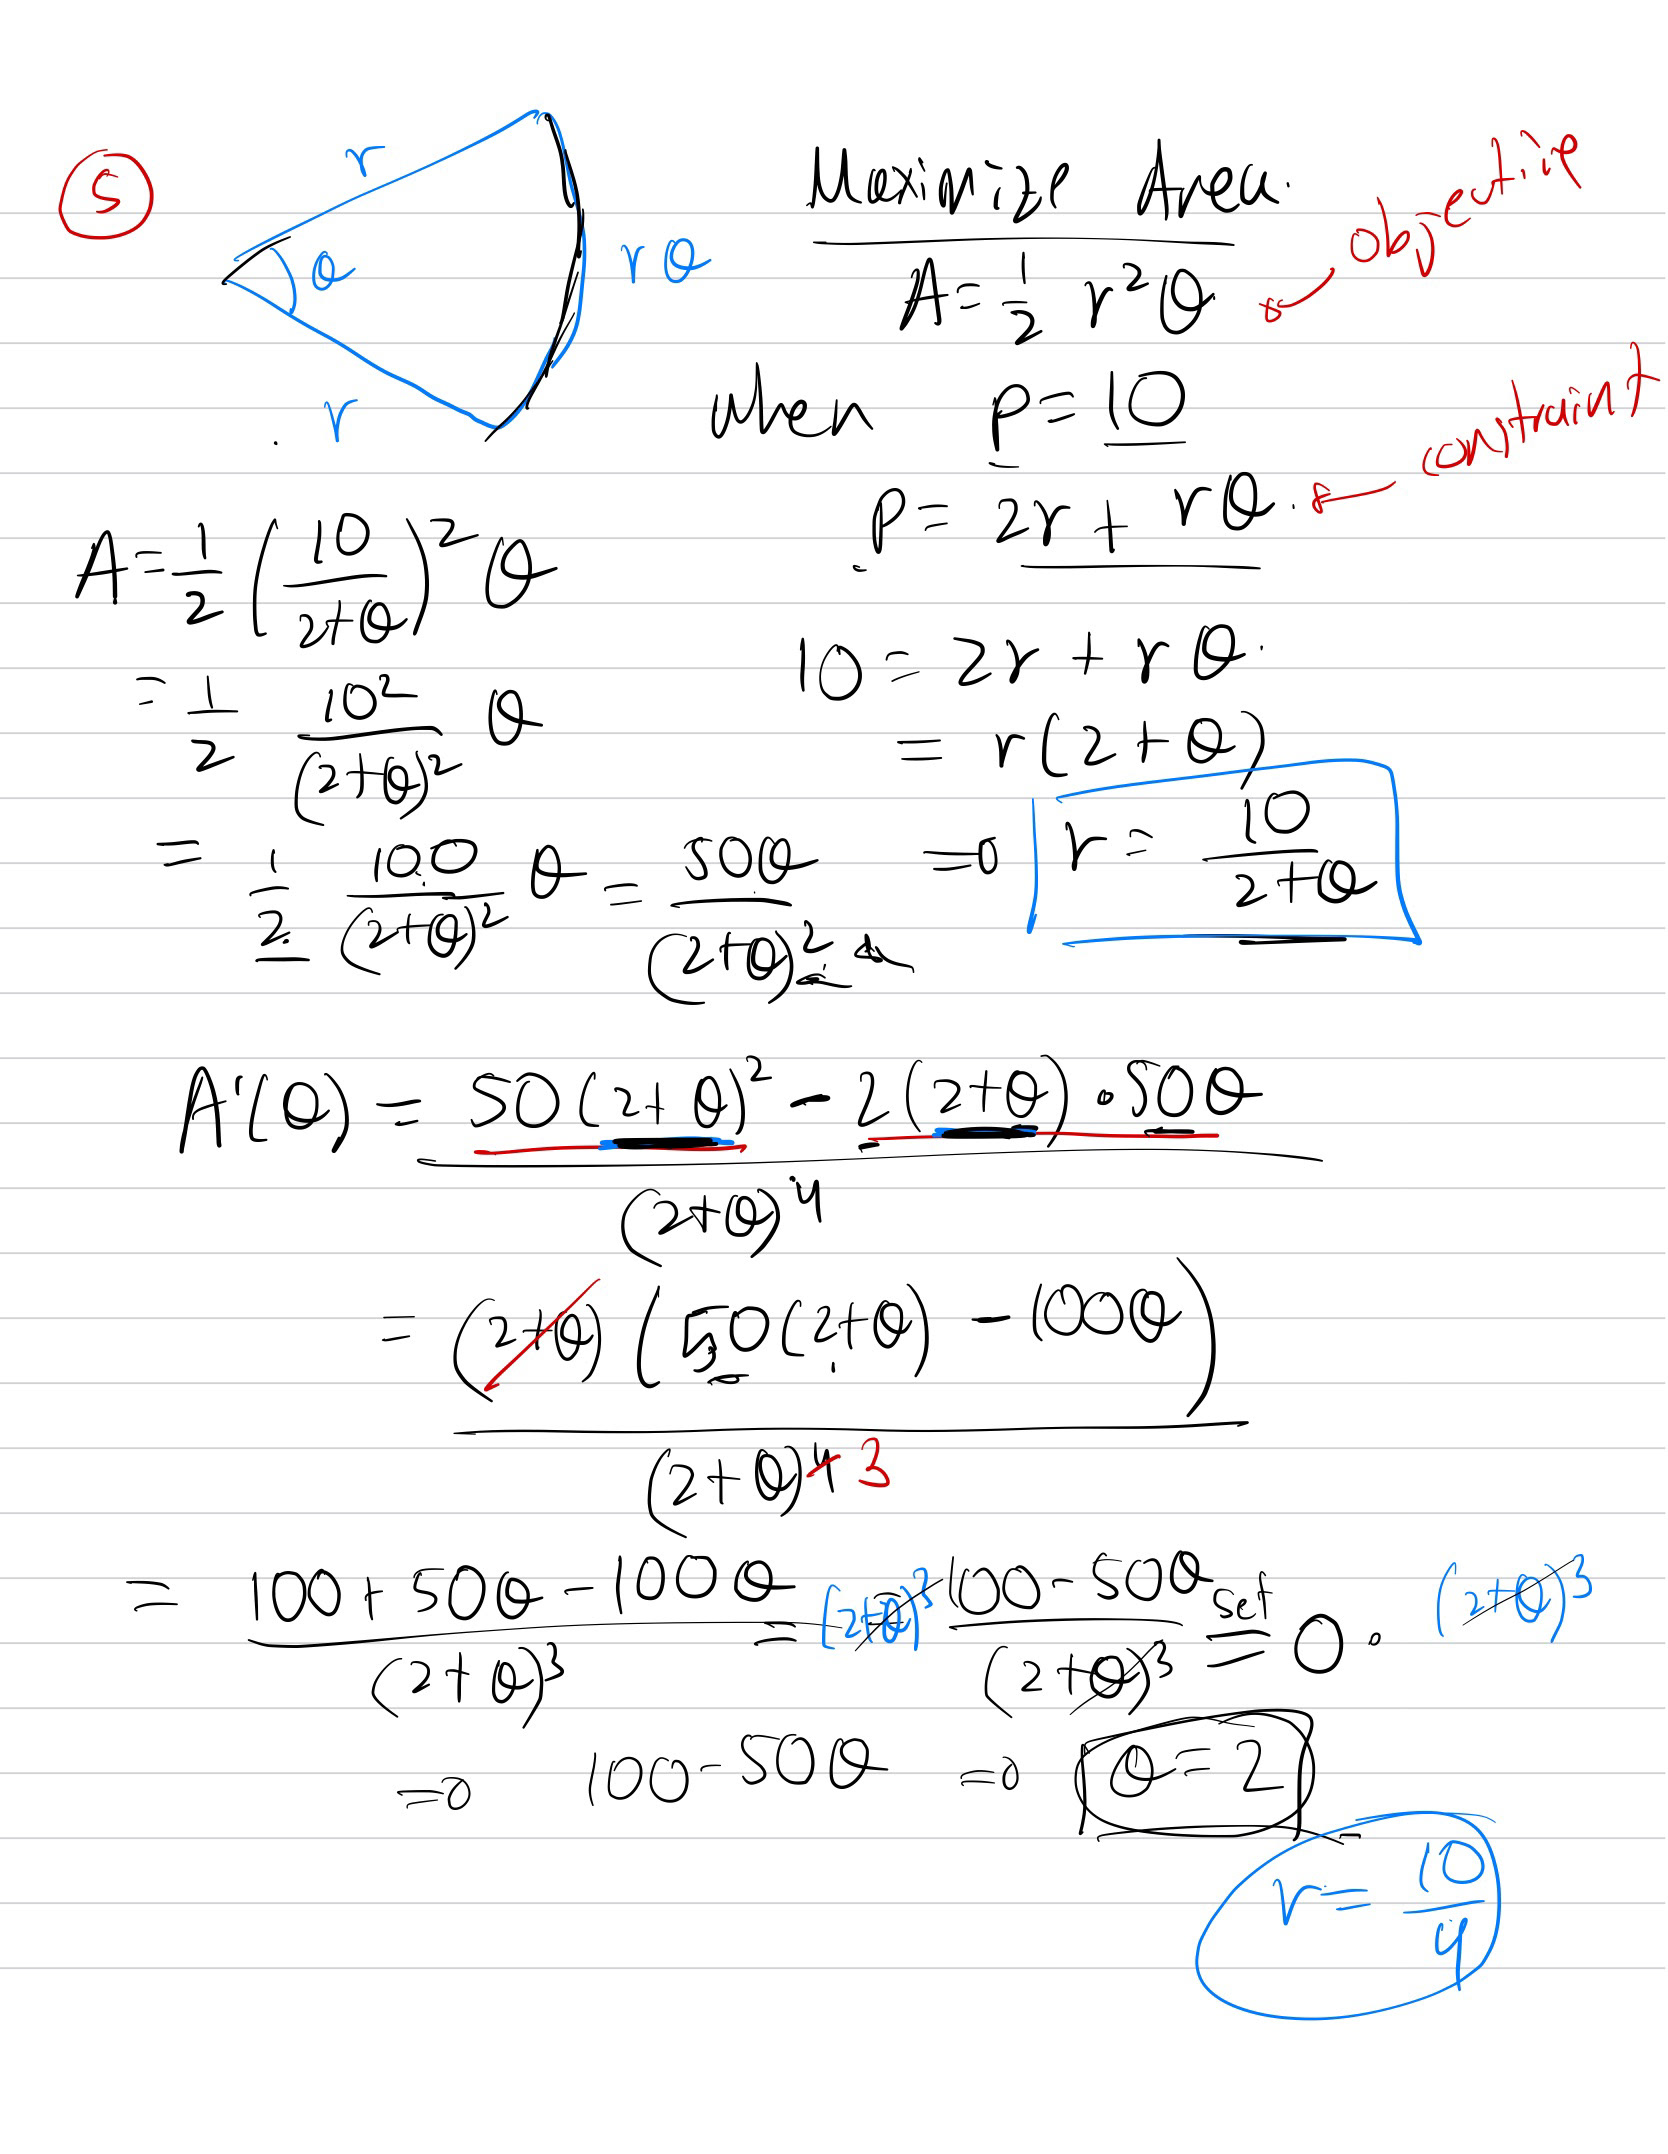 5
r
θ
rθ
r
Maximize Area.
A = 1/2 r²θ ← objective
when p = 10
p = 2r + rθ. ← constraint
10 = 2r + rθ.
= r(2+θ)
⇒ r = 10/(2+θ)
A = 1/2 (10/(2+θ))² θ
= 1/2 10²/(2+θ)² θ
= 1/2 100/(2+θ)² θ = 50θ/(2+θ)²
A'(θ) = (50(2+θ)² - 2(2+θ)·50θ)/(2+θ)⁴
= (2+θ)(50(2+θ) - 100θ)/(2+θ)⁴ 3
= (100 + 50θ - 100θ)/(2+θ)³ = (2+θ)³ (100 - 50θ)/(2+θ)³ set = 0. (2+θ)³
⇒ 100 - 50θ ⇒ θ = 2
r = 10/4